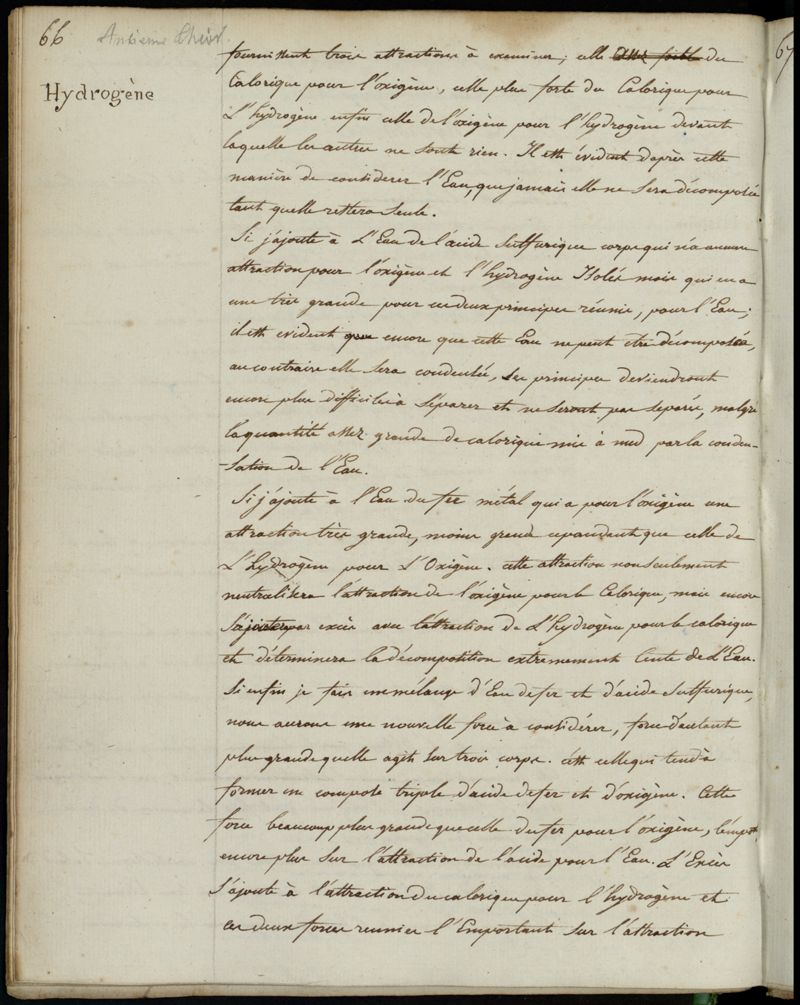 66 Ancienne Théor.
Hydrogène
fournissent trois attractions à examiner; celle du
Calorique pour l'oxigène, celle plus forte du Calorique pour
L'hydrogène enfin celle de l'oxigène pour l'hydrogène devant
laquelle les autres ne sont rien. Il est évident d'après cette
manière de considerer l'Eau, que jamais elle ne sera décomposée
tant quelle restera seule.
Si j'ajoute à L'Eau de l'acide Sulfurique corps qui n'a aucune
attraction pour l'oxigène et l'hydrogène Isolés mais qui en a
une très grande pour ces deux principes réunis, pour l'Eau;
il est evident encore que cette Eau ne peut être décomposée,
au contraire elle sera condensée, ses principes deviendront
encore plus difficiles à séparer et ne seront pas separés, malgré
la quantité assez grande de calorique mis à nud par la conden-
-sation de l'Eau.
Si j'ajoute à l'Eau du fer métal qui a pour l'oxigène une
attraction très grande, moins grand cependant que celle de
L'hydrogène pour L'Oxigène. cette attraction non seulement
neutralisera l'attraction de l'oxigène pour le Calorique, mais encore
S'ajoutera par excès avec l'attraction de L'hydrogène pour le calorique
et déterminera la décomposition extremement lente de L'Eau.
Si enfin je fais un mélange d'Eau de fer et d'acide Sulfurique,
nous aurons une nouvelle force à considérer, force d'autant
plus grande quelle agit sur trois corps. c'est celle qui tend à
former un composé triple d'acide de fer et d'oxigène. Cette
force beaucoup plus grande que celle du fer pour l'oxigène, l'emporte
encore plus sur l'attraction de l'acide pour l'Eau. L'Excès
S'ajoute à l'attraction du calorique pour l'hydrogène et
ces deux forces reunies l'Emportent sur l'attraction
67